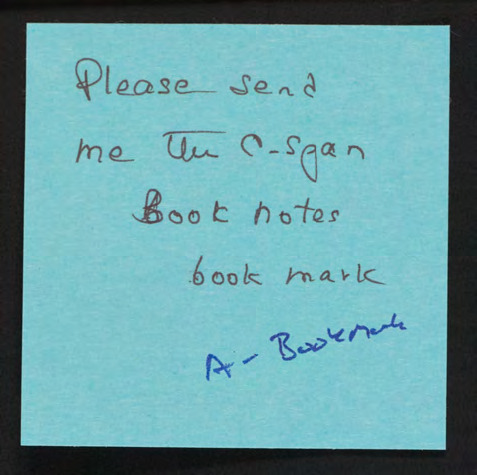 Please send
me The C-Span
Book notes
book mark
A - Bookmark